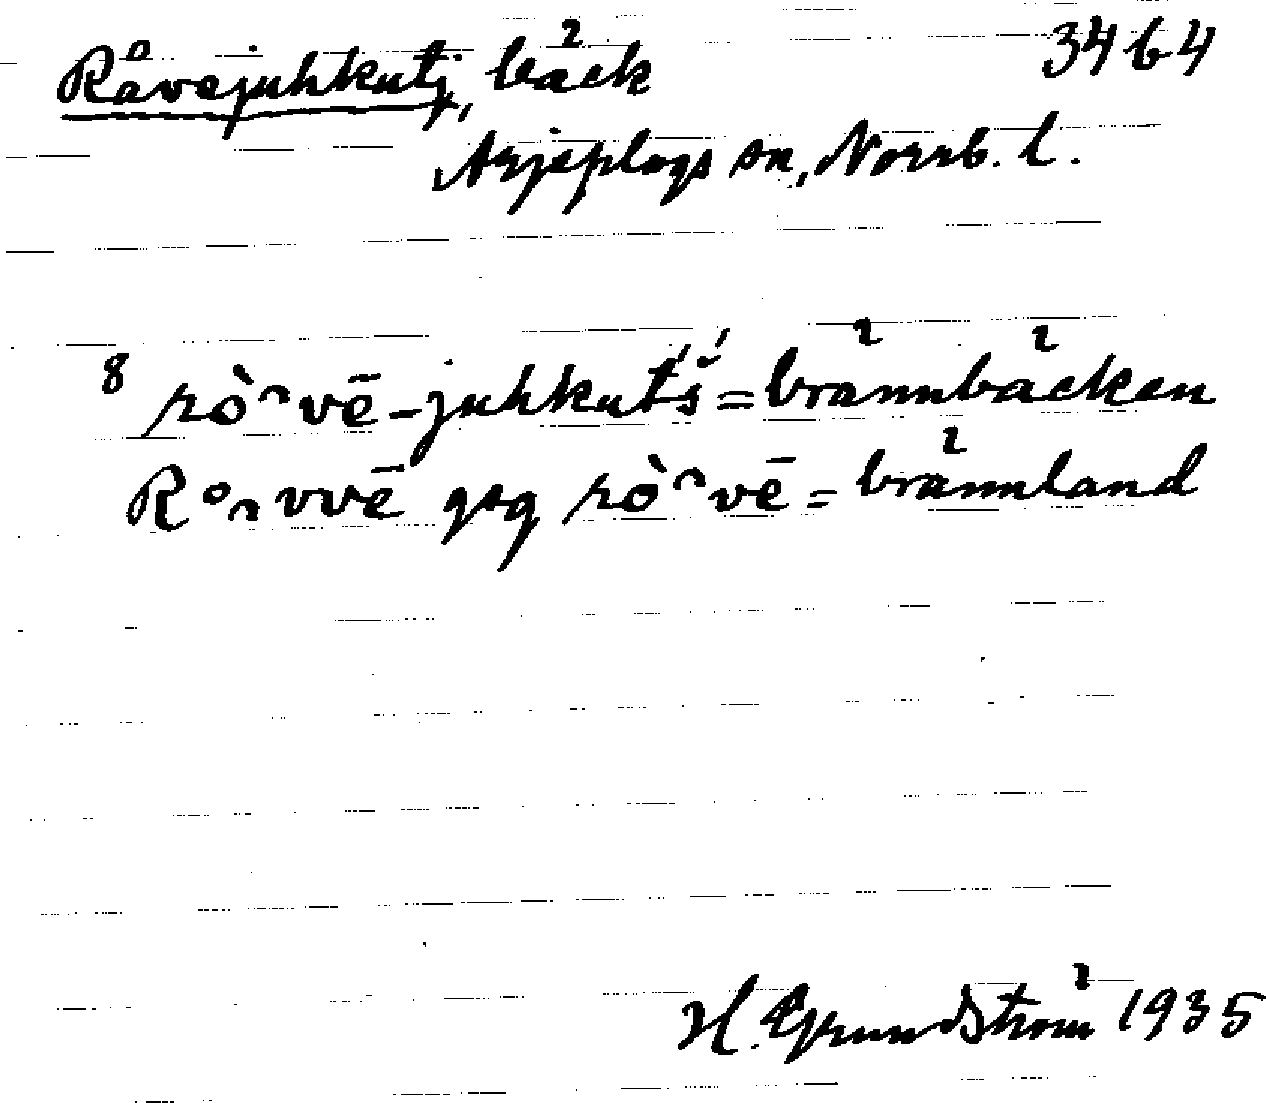 Råvejuhkutj, bäck 3464
Arjeplogs sn, Norrb. l.
8 rò͡vē-juhkut́ś = brännbäcken
R o͡vvē gsg rò͡vē = brännland
H. Grundström 1935